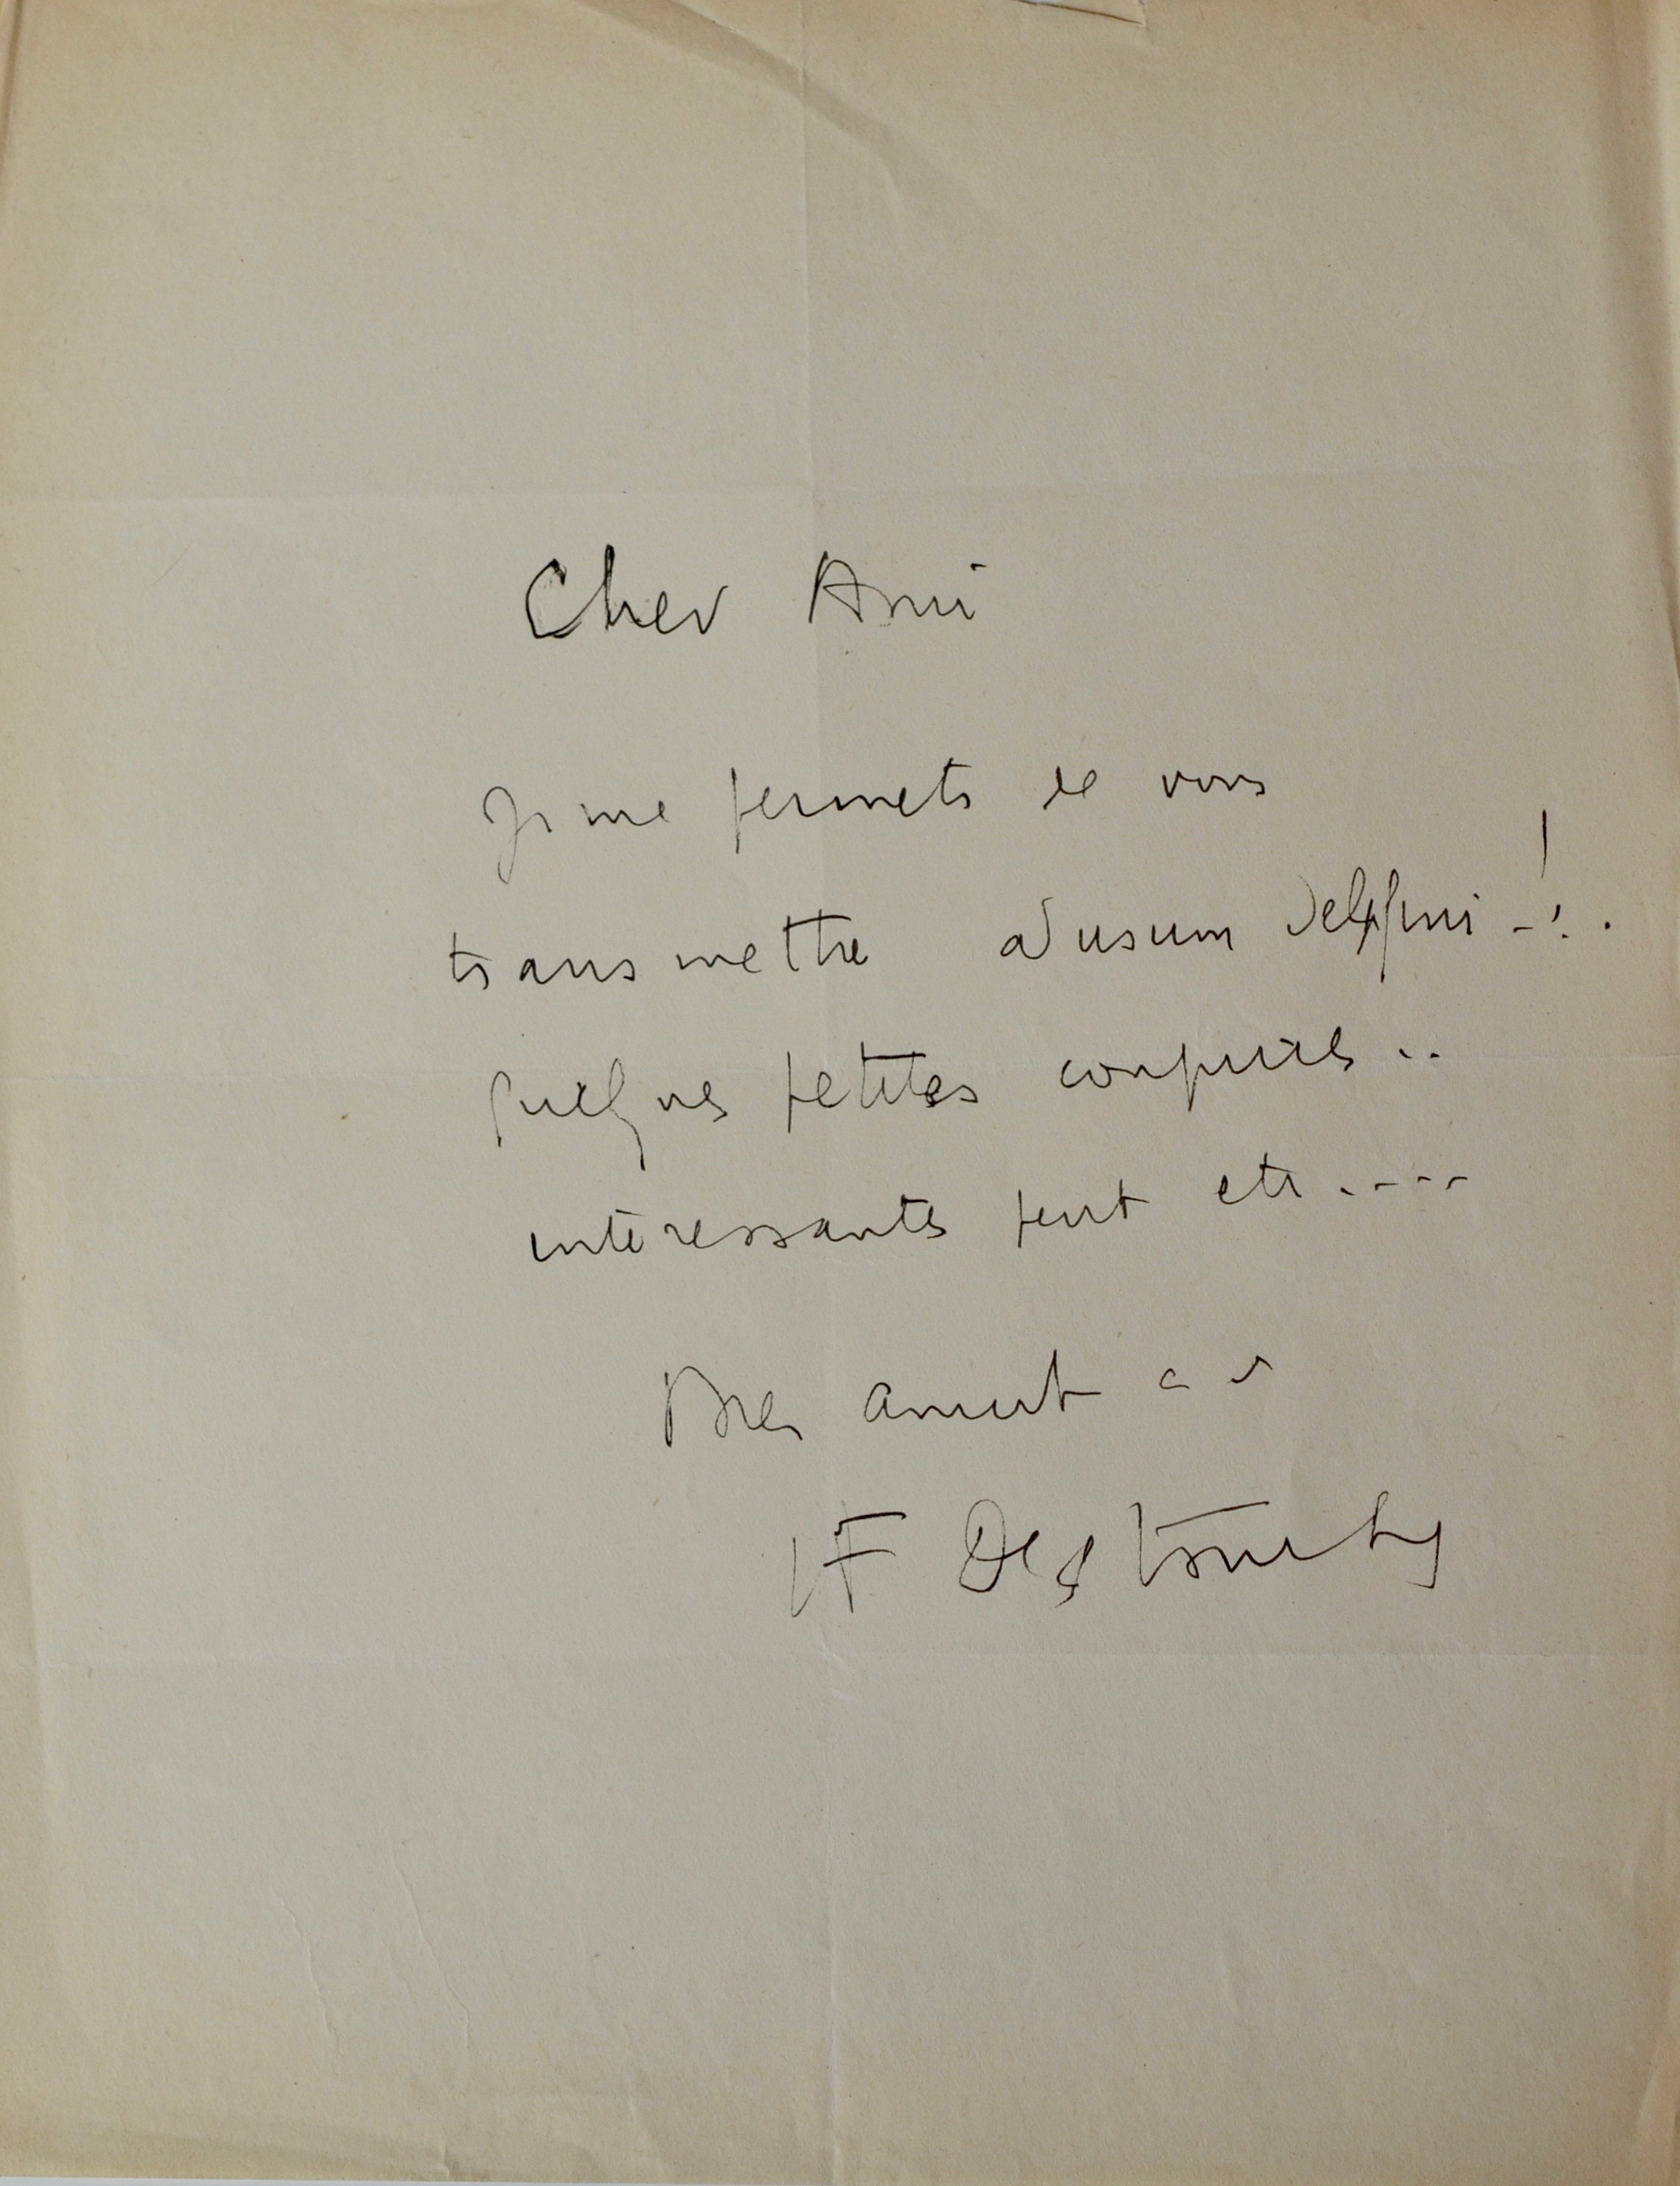 Cher Ami
Je me permets de vous
transmettre ad usum Delphini -! .
quelques petites coupures ..
interessantes peut etr ....
Bien amicmt ..
LF Destouches